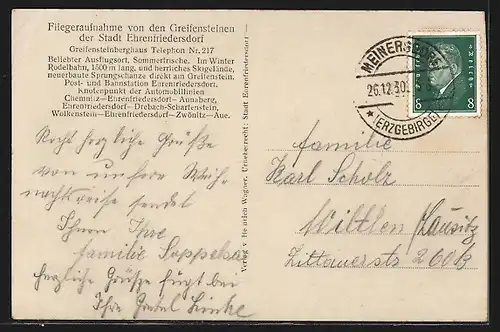 Fliegeraufnahme von den Greifensteinen
der Stadt Ehrenfriedersdorf
Greifensteinberghaus Telephon Nr. 217
Beliebter Ausflugsort, Sommerfrische. Im Winter
Rodelbahn, 1500 m lang, und herrliches Skigelände,
neuerbaute Sprungschanze direkt am Greifenstein.
Post- und Bahnstation Ehrenfriedersdorf.
Knotenpunkt der Automobillinien
Chemnitz—Ehrenfriedersdorf—Annaberg,
Ehrenfriedersdorf—Drebach-Scharfenstein,
Wolkenstein—Ehrenfriedersdorf—Zwönitz—Aue.
Recht herzliche Grüße
von unsere Weih-
nachtsreise sendet
Ihnen Ihre
Familie
herzliche Grüße fügt bei
Ihre Gretel Linke
Verlag v. Heinrich Wagner, Urheberrecht: Stadt Ehrenfriedersdorf
MEINERSDORF
26.12.30.
(ERZGEBIRGE)
8 8
Familie
Karl Scholz
Wilthen /Lausitz
Zittauerstr 260B